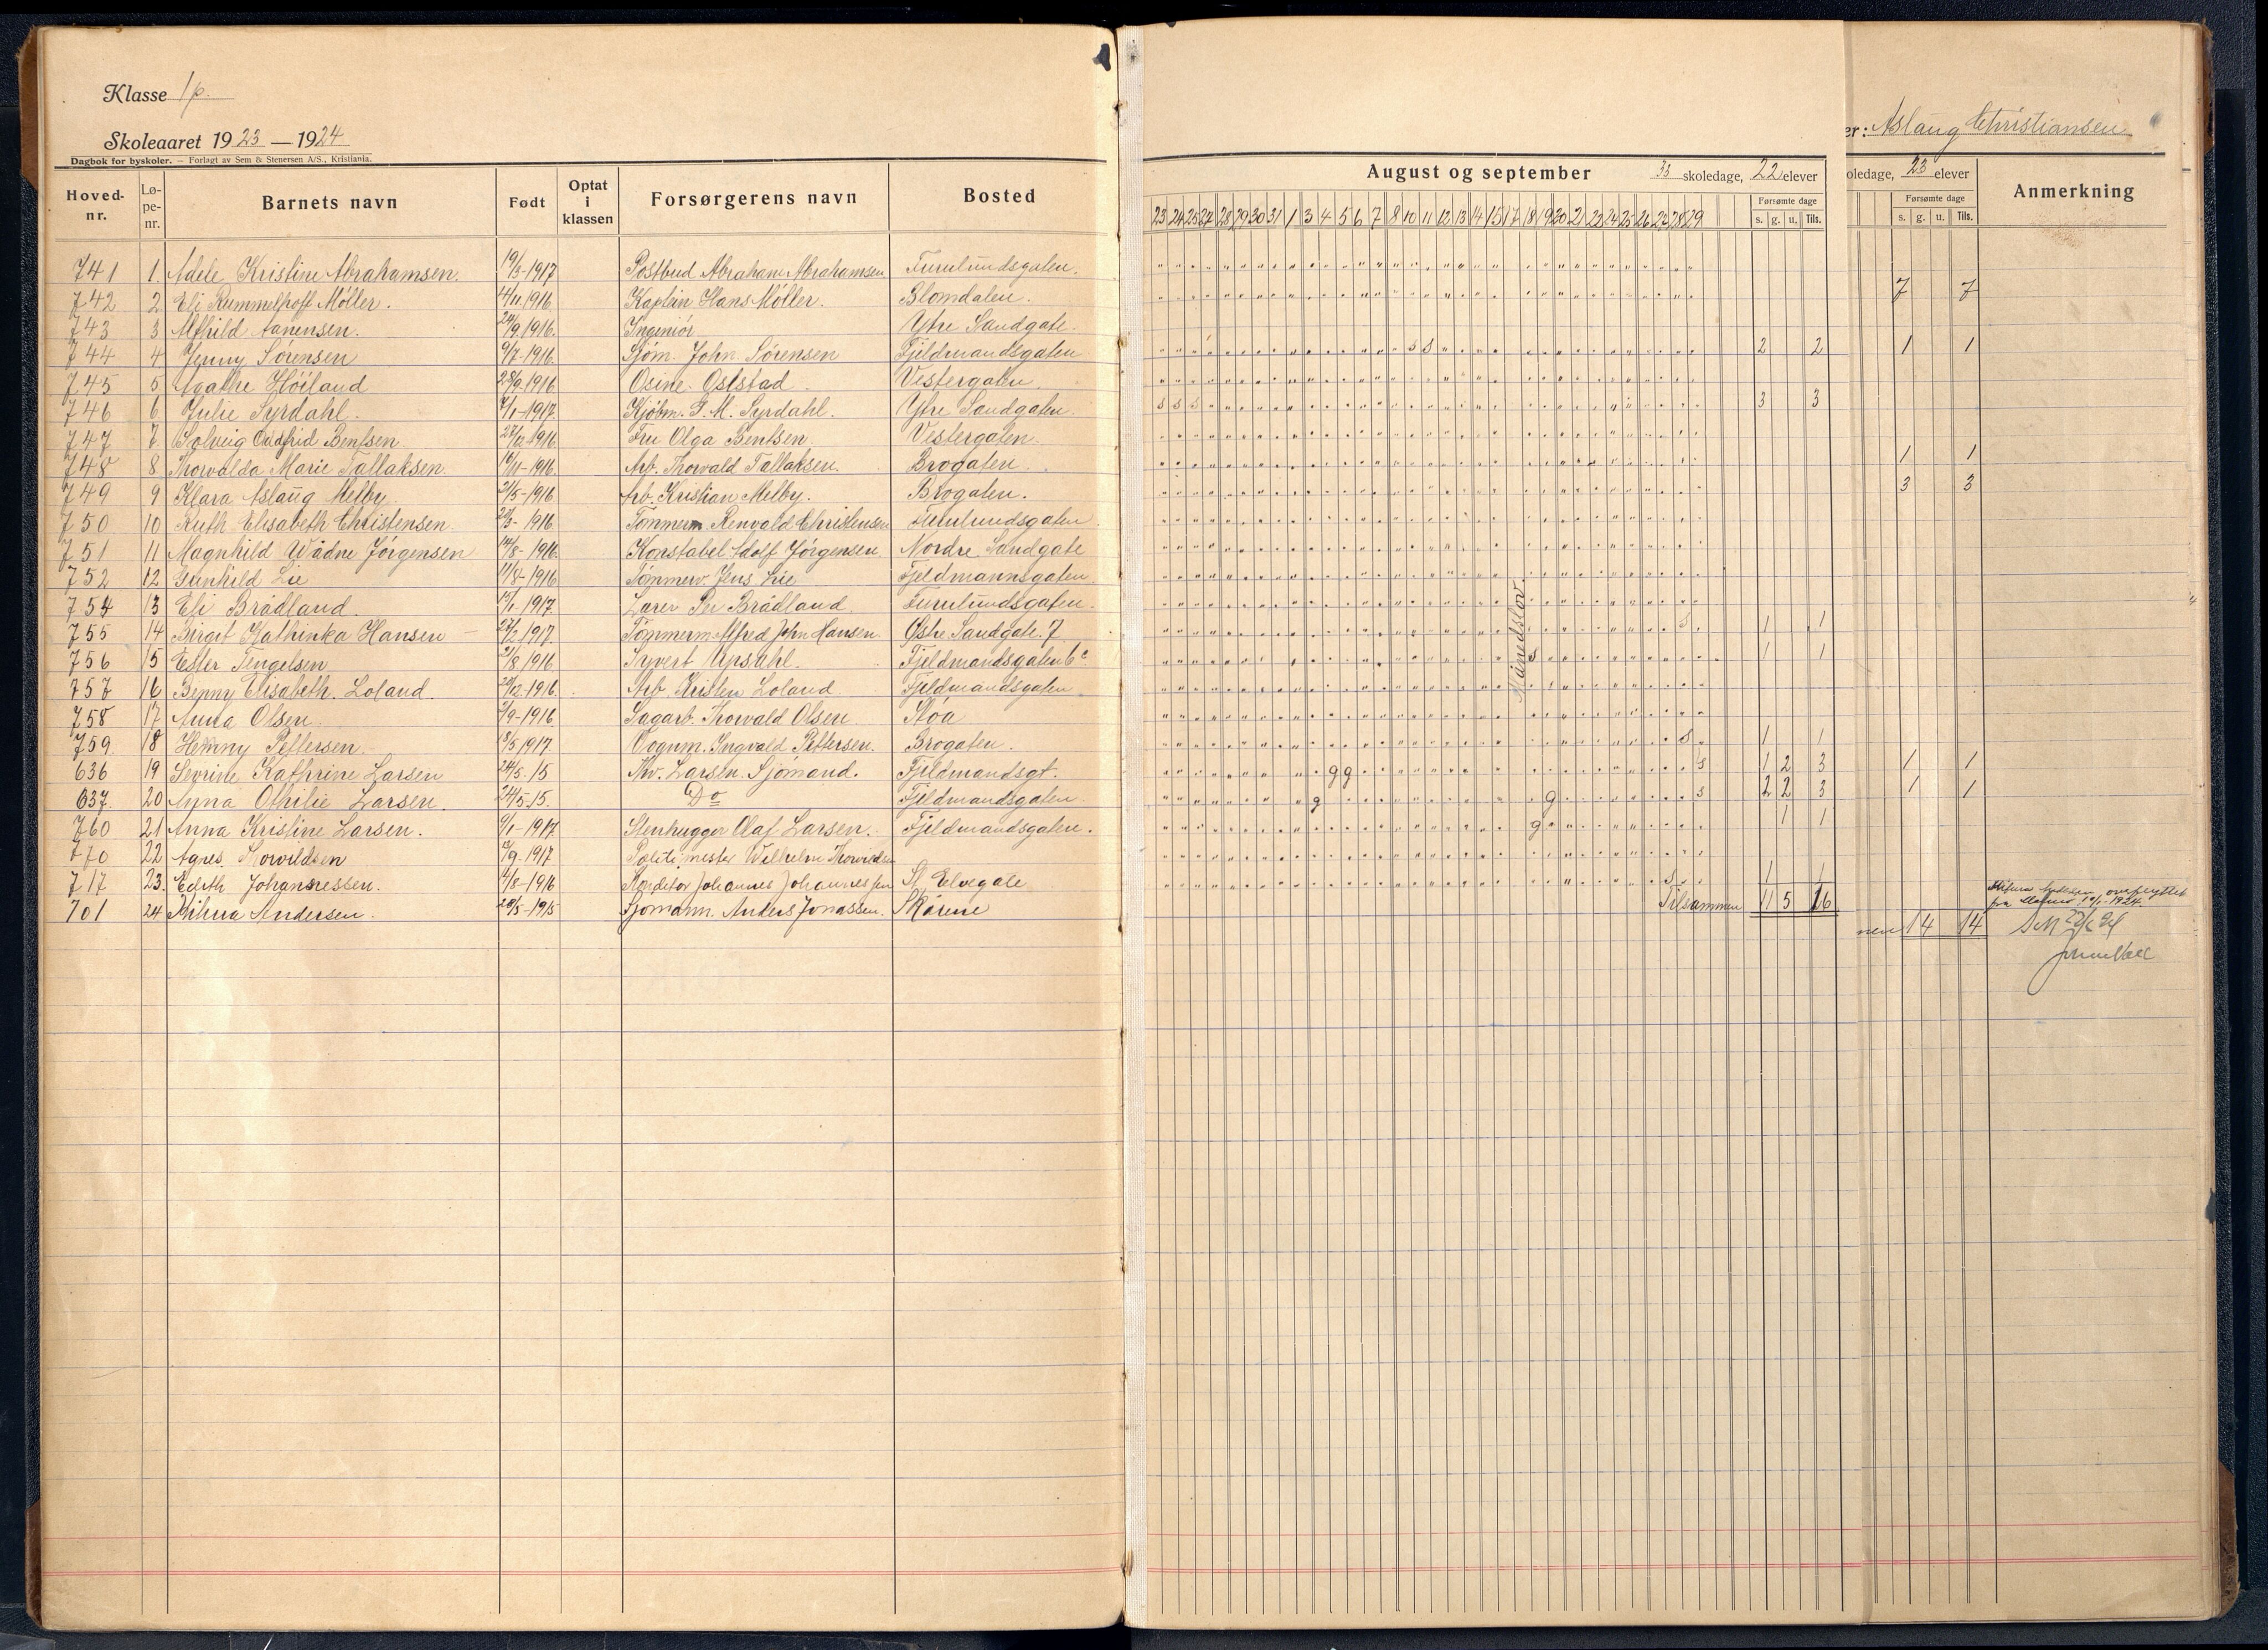 Klasse 1p.
Skoleaaret 1923 — 1924
Dagbok for byskoler. — Forlagt av Sem & Stenersen A/S., Kristiania.
er: Aslaug Christiansen
Hoved-nr. Lø-pe-nr. Barnets navn Født Optat i klassen Forsørgerens navn Bosted
August og september 33 skoledage, 22 elever
oledage, 23 elever
Anmerkning
Forsømte dage Forsømte dage
23 24 25 27 28 29 30 31 1 3 4 5 6 7 8 10 11 12 13 14 15 17 18 19 20 21 22 24 25 26 27 28 29 s. g. u. Tils. s. g. u. Tils.
741 1. Adele Kristine Abrahamsen. 19/3-1917 Postbud Abraham Abrahamsen Furulundsgaten.
742 2 Eli Rummelhoff Møller. 14/11 1916 Kaptein Hans Møller. Blomdalen. 7 7
743 3 Alfhild Aanensen. 24/9 1916. Ingeniør Ytre Sandgate.
744 4 Jenny Sørensen 9/7-1916. Sjøm. John Sørensen Fjeldmandsgaten s s 2 2 1 1
745 5 Agathe Høiland 28/9 1916 Osine Oststad Vestergaten.
746 6 Julie Syrdahl. 7/1-1917. Kjøbm. G. M. Syrdahl. Ytre Sandgaten. s s s 3 3
747 7 Solveig Oudfrid Bentsen 1916 Fru Olga Bentsen Vestergaten.
748 8 Thorvalda Marie Tallaksen. 1916. Arb. Thorvald Tallaksen. Brogaten. 1 1
749 9 Klara Aslaug Melby. 21/5-1916 Arb. Kristian Melby. Brogaten. 3 3
750 10 Ruth Elisabeth Christensen 1916 Tømmerm. Renvald Christensen Furulundsgaten
751 11 Magnhild Wådne Jørgensen 14/8-1916. Konstabel Adolf Jørgensen Nordre Sandgate
752 12 Gunhild Lie 11/8-1916 Tømmerv. Jens Lie Fjeldmannsgaten.
754 13 Eli Brådland. 1917. Lærer Per Brådland. Furulundsgaten.
755 14 Birgit Kathinka Hansen 27/2 1917. Tømmerm. Alfred John Hansen. Østre Sandgate. 7 s 1 1
756 15 Ester Tengelsen 21/8 1916 Syvert Upsahl. Fjeldmandsgaten 6c s 1 1
757 16 Benny Elisabeth. Loland. 29/12-1916. Arb. Kristen Loland Fjeldmandsgaten
Månedslov.
758 17 Anna Olsen 1916 Sagarb. Thorvald Olsen Støa
759. 18 Henny Pettersen. 18/5 1917. Vognm. Ingvald Pettersen. Brogaten. s 1 1
636 19 Sevrine Kathrine Larsen 24/5-15 Kv. Larsen. Sjømand. Fjeldmandsgt. g g s 1 2 3 1 1
637. 20 Anna Othilie Larsen. 24/5-15. Do Fjeldmandsgaten g g s 2 2 3 1 1
760 21 Anna Kristine Larsen. 9/1-1917 Stenhugger Olaf Larsen. Fjeldmandsgaten. g 1 1
770 22 Agnes Thorvildsen 1917 Politimester Wilhelm Thorvildsen
717 23. Edith Johannessen. 1916 Konditor Johannes Johannessen St. Elvegate s 1 1
701 24 Milma Andersen. 20/5-1915 Sjømann. Anders Jonassen. Skårene Tilsammen 11 5 16
Andersen, overflyttet
fra 1924.
men 14 14